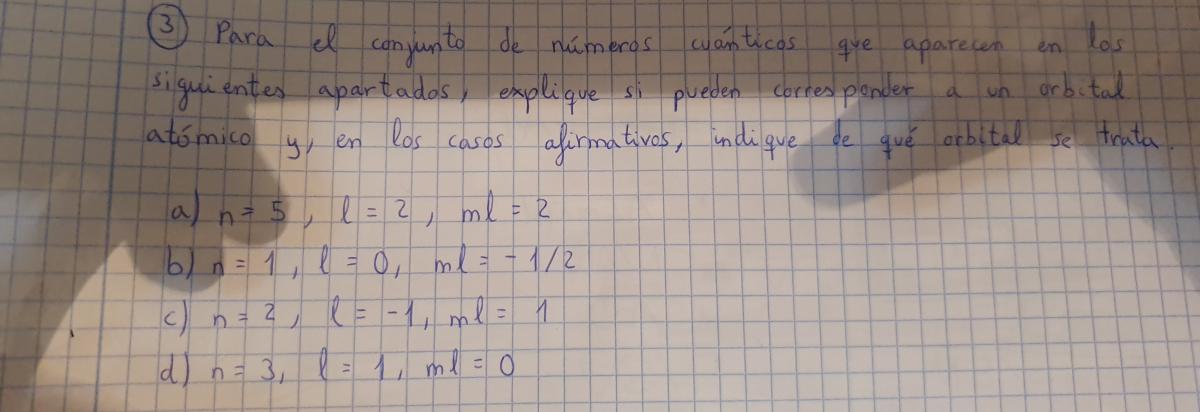 ③ Para el conjunto de números cuánticos que aparecen en los
siguientes apartados, explique si pueden corresponder a un orbital
atómico y, en los casos afirmativos, indique de qué orbital se trata.
a) n = 5, l = 2, ml = 2
b) n = 1, l = 0, ml = - 1/2
c) n = 2, l = -1, ml = 1
d) n = 3, l = 1, ml = 0